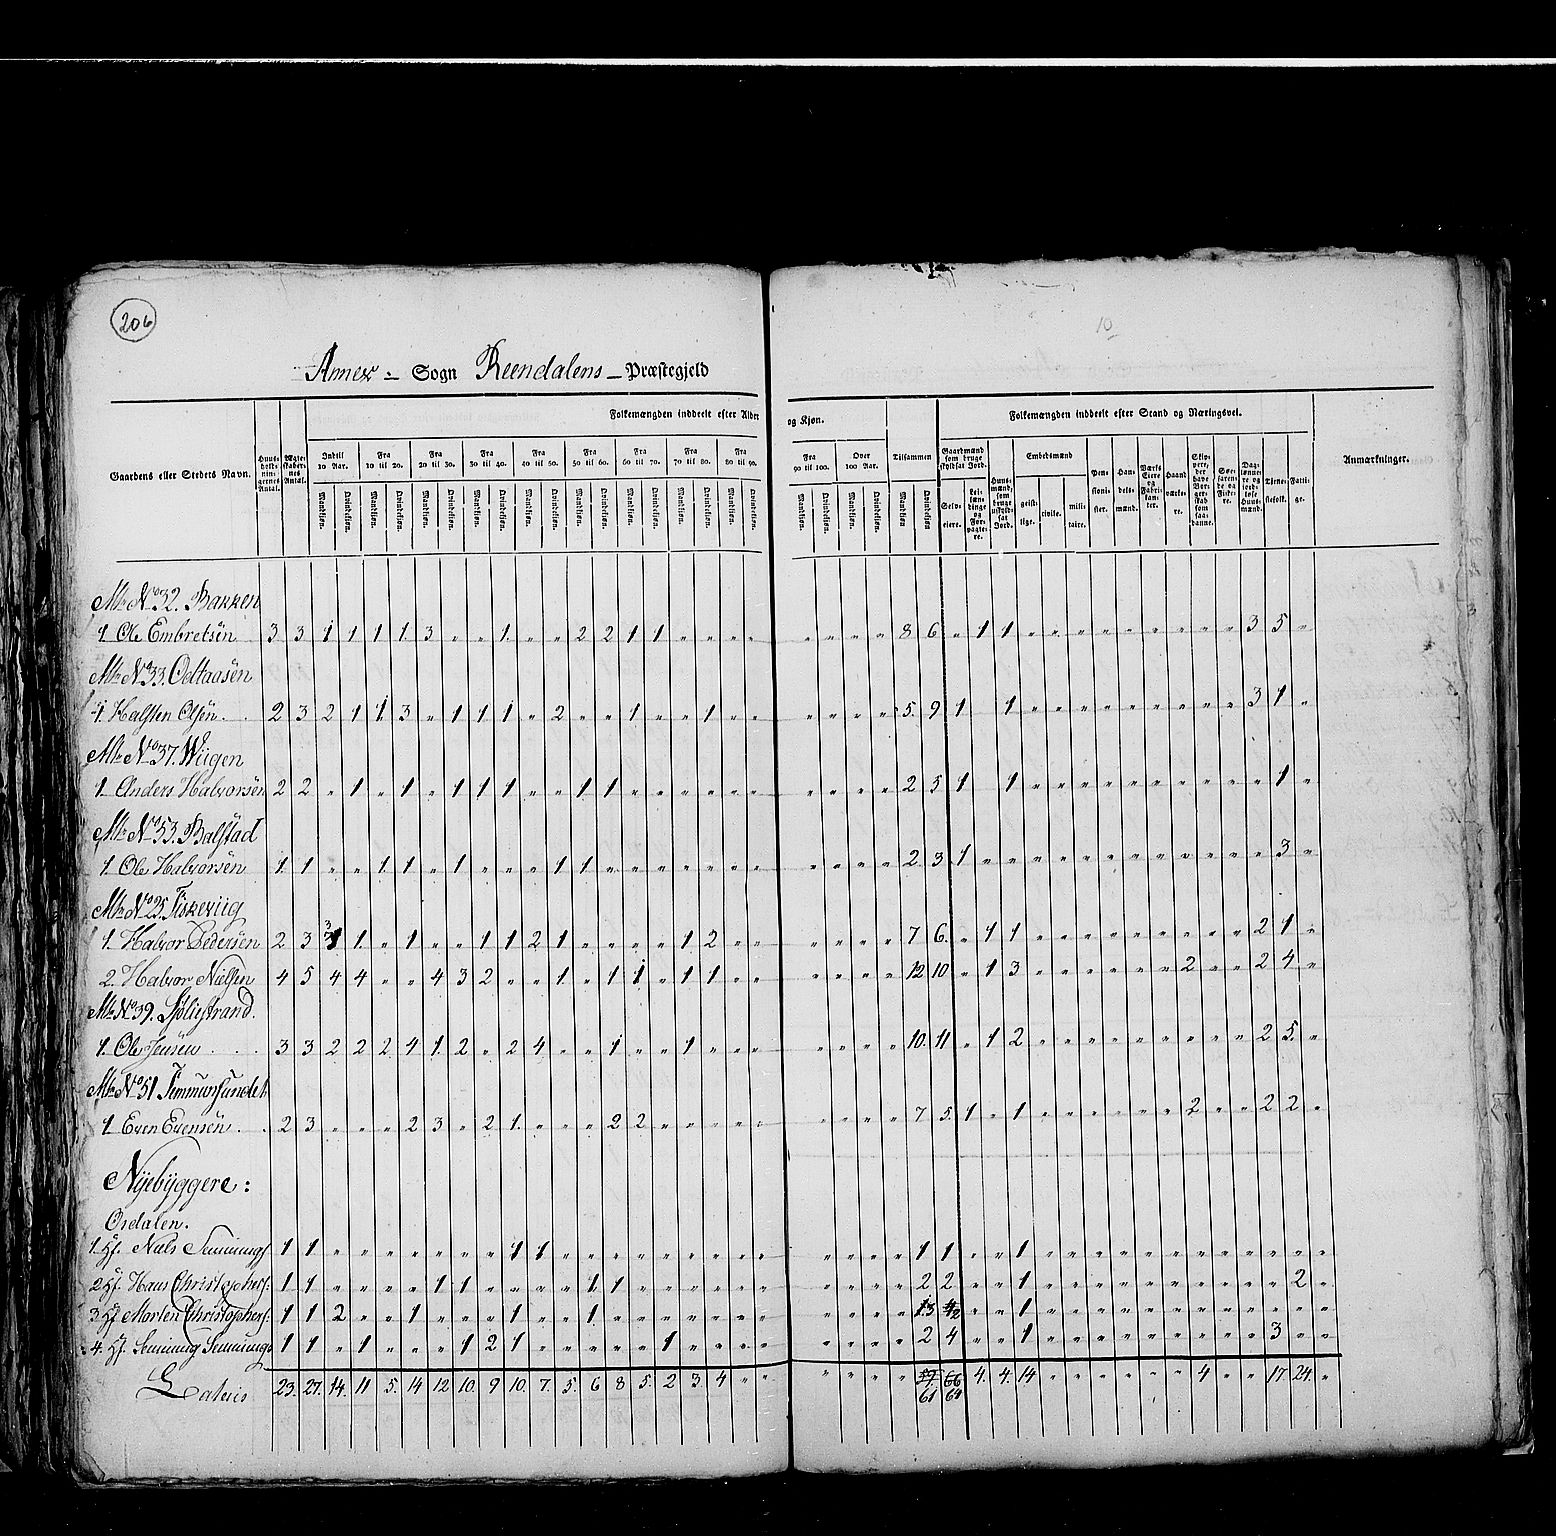 206
10
Annex :- Sogn Reendalens - Præstegjeld
Folkemængden inddeelt efter Alder og Kjøn.
Folkemængden inddeelt efter Stand og Næringsvei.
Gaardens eller Stedets Navn.
Huus-holdningernes Antal.
Ægteskabernes Antal.
Indtil 10 Aar.
Fra 10 til 20.
Fra 20 til 30.
Fra 30 til 40.
Fra 40 til 50.
Fra 50 til 60.
Fra 60 til 70.
Fra 70 til 80.
Fra 80 til 90.
Fra 90 til 100.
Over 100 Aar.
Tilsammen
Gaardmænd som bruge skyldsat Jord.
Embedsmænd
Anmærkninger.
Mandkjøn. Qvindekjøn. Mandkjøn. Qvindekjøn. Mandkjøn. Qvindekjøn. Mandkjøn. Qvindekjøn. Mandkjøn. Qvindekjøn. Mandkjøn. Qvindekjøn. Mandkjøn. Qvindekjøn. Mandkjøn. Qvindekjøn. Mandkjøn. Qvindekjøn. Mandkjøn. Qvindekjøn. Mandkjøn. Qvindekjøn. Mandkjøn Qvindekjøn.
Selveiere.
Leilændinge og Forpagtere.
Huusmænd, som bruge uskyldsat Jord.
geistlige.
civile.
militaire.
Pensionister.
Handelsmænd.
Værks Eiere og Fabrikanter.
Haandværkere.
Skippere, der have Borgerskab som saadanne.
Søefarende og Fiskere.
Daglønnere og jordløse Huusmænd.
Tjenestefolk.
Fattige.
Mk No 32. Bakken
1. Ole Embretsen 3 3 1 1 1 1. 3 " " 1. " " 2 2 1 1 " " " " " " " " 8 6 " 1 1 " " " " " " " " " 3 5 "
Mk No 33. Odtaasen
1. Halsten Olsen . . 2 3 2 1 1. 3 " 1 1 1 " 2 " " 1 " " 1 " " " " " " 5. 9 1 1 " " " " " " " " " 3 1 "
Mk No 37. Wiigen
1. Anders Halvorsen 2 2 " 1 " 1 " 1 1 1 " " 1 1 " " " " " " " " " " 2 5 1 1 " " " " " " " " " " 1 "
Mk No 53. Balstad
1. Ole Halvorsen 1. 1 " " 1. 1 " 1 " " " 1 1 " " " " " " " " " " 2. 3 1 " " " " " " " " " " " " 3 "
Mk No 25. Fiskeviig
1. Halvor Pedersen 2 3 3 1. " 1 " " 1 1 2 1 " " " " 1 2 " " " " " " 7 6. " 1 1 " " " " " " " " " 2 1 "
2. Halvor Nielsen 4 5 4 4 " " 4 3 2 " " 1 " 1 1 " 1 1 " " " " " " 12 10 " 1 3 " " " " " " 2 " " 2 4 "
Mk No 39. Søliestrand.
1. Ole Jensen . . . 3 3 2 2 2 4 1. 2 " 2 4 " " 1 " " 1 " " " " " " " 10. 11 " 1 2 " " " " " " " " " 2 5. "
Mk No 51 Femmunsundet
1. Even Evensen . . 2 3 " " " 2 3 " 2 1. " " " 2 2 " " " " " " " " " 7 5. 1 " 1 " " " " " " 2 " " 2 2 "
Nÿebÿggere :
Osdalen.
1. Hf. Niels 1 1 " " " " " " " 1 1 " " " " " " " " " " " " " 1 1 " " 1 " " " " " " " " " " " "
2 Hf. Hans Christophers: 1. 1 " " " " 1 1 " " " " 1 1 " " " " " " " " " " 2 2 " " 1 " " " " " " " " " " 2 "
3 Hf Morten Christophers: 1 1 2 " " 1 " " " 1 " " 1. " " " " " " " " " " " 3 2 " " 1 " " " " " " " " " " " "
4. Hf. 1 1 " 1 " " " 1 2 1 " " " " " 1 " " " " " " " " 2 4 " " 1 " " " " " " " " " 3 " "
Lateris 23. 27. 14. 11 5. 14 12 10. 9 10. 7. 5. 6 8 5. 2 3. 4 " " " " " " 57 66 4. 4. 14 " " " " " " 4 " " 17. 24. "
61 64